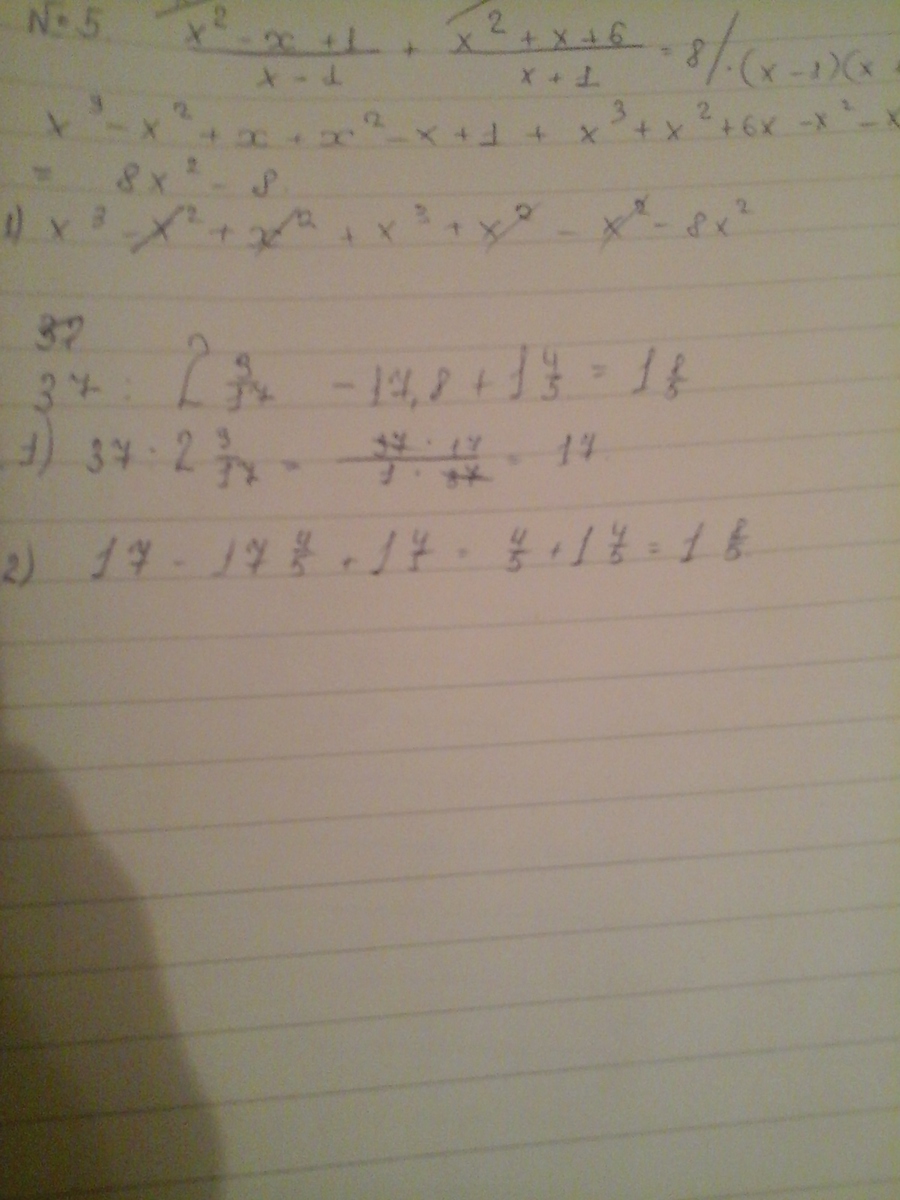 №5. (x² - x + 1)/(x - 1) + (x² + x + 6)/(x + 1) = 8 / · (x - 1)(x
x³ - x² + x + x² - x + 1 + x³ + x² + 6x - x² - x
= 8x² - 8
1) x³ - x² + x² + x³ + x² - x² - 8x²
37
37 : 2 3/17 - 17,8 + 1 4/5 = 1 8/5
1) 37 · 2 3/17 = (37 · 17)/(1 · 37) = 17
2) 17 - 17 4/5 + 1 4/5 = 4/5 + 1 4/5 = 1 8/5